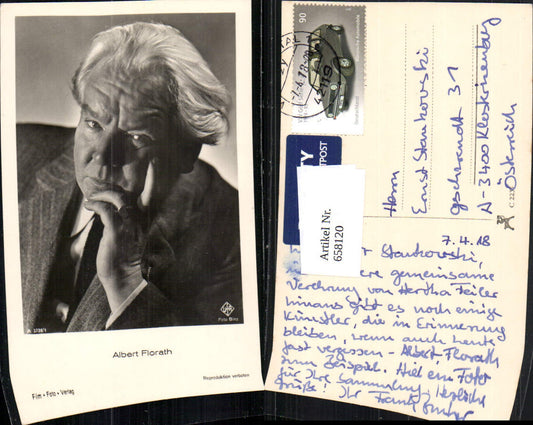 Ufa
Foto Binz
A 3738/1
Albert Florath
Film-Foto-Verlag
Reproduktion verboten
90
Deutschland
42119
TY
TPOST
Artikel Nr.
658120
Herrn
Ernst Stankovski
31
A-3400 Klosterneuburg
Österreich
7.4.18
Stankovski,
gemeinsame
Verehrung von Hertha Feiler
hinaus gibt es noch einige
Künstler, die in Erinnerung
bleiben, wenn auch heute
fast vergessen - Albert Florath
zum Beispiel. ein Foto
für Ihre Sammlung. Herzliche
Grüße! Ihr